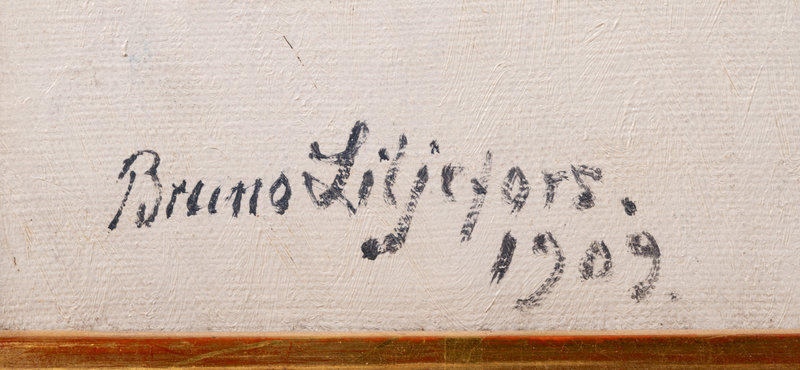 Bruno Liljefors.
1909.